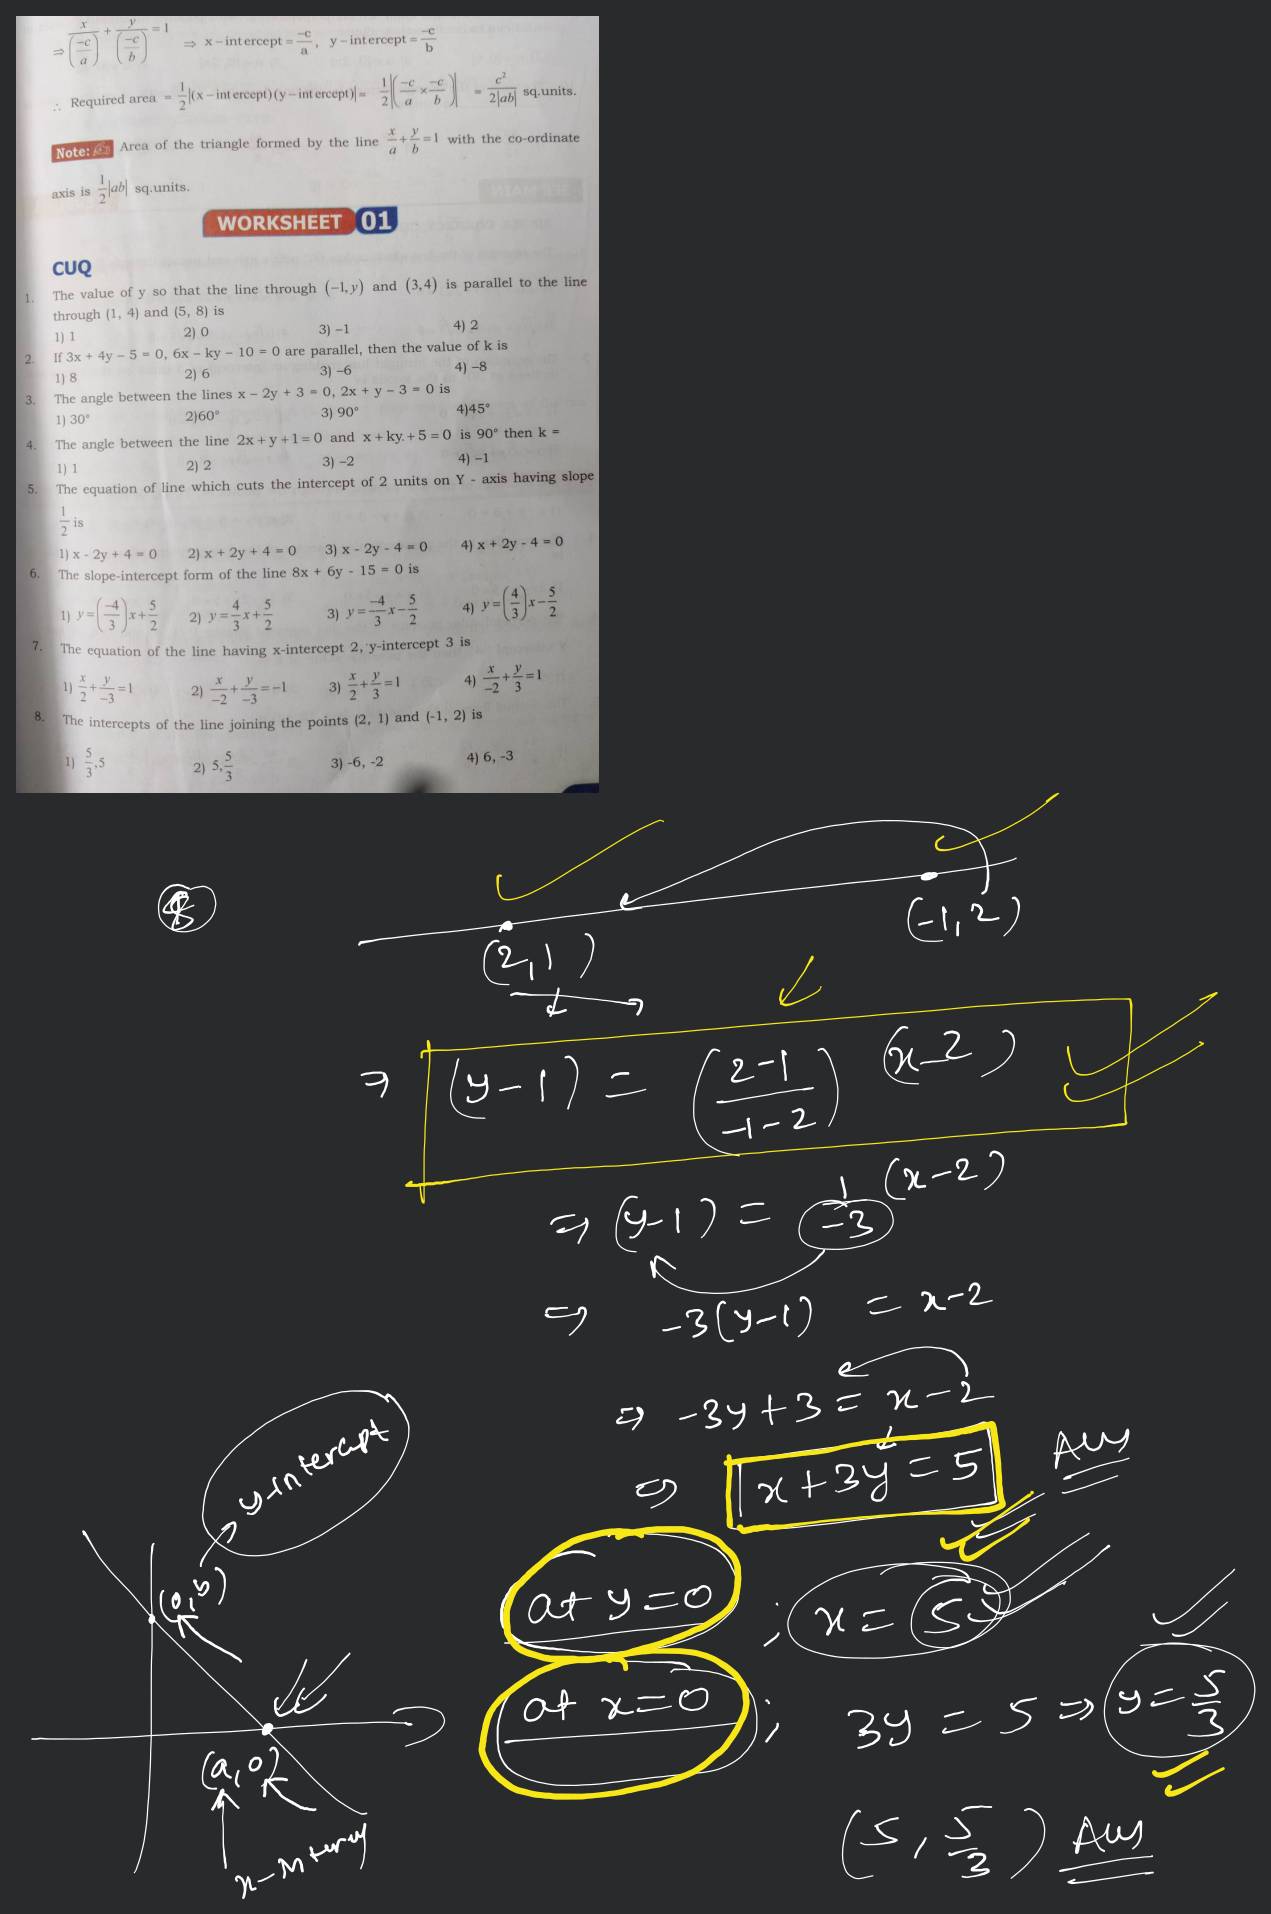 ⇒ x/(-c/a) + y/(-c/b) = 1 ⇒ x-intercept = -c/a, y-intercept = -c/b
∴ Required area = 1/2|(x-intercept)(y-intercept)| = 1/2|(-c/a × -c/b)| = c²/2|ab| sq.units.
Note: Area of the triangle formed by the line x/a + y/b = 1 with the co-ordinate
axis is 1/2|ab| sq.units.
WORKSHEET 01
CUQ
1. The value of y so that the line through (-1, y) and (3,4) is parallel to the line
through (1, 4) and (5, 8) is
1) 1 2) 0 3) -1 4) 2
2. If 3x + 4y - 5 = 0, 6x - ky - 10 = 0 are parallel, then the value of k is
1) 8 2) 6 3) -6 4) -8
3. The angle between the lines x - 2y + 3 = 0, 2x + y - 3 = 0 is
1) 30° 2)60° 3) 90° 4)45°
4. The angle between the line 2x + y + 1 = 0 and x + ky. + 5 = 0 is 90° then k =
1) 1 2) 2 3) -2 4) -1
5. The equation of line which cuts the intercept of 2 units on Y - axis having slope
1/2 is
1) x - 2y + 4 = 0 2) x + 2y + 4 = 0 3) x - 2y - 4 = 0 4) x + 2y - 4 = 0
6. The slope-intercept form of the line 8x + 6y - 15 = 0 is
1) y = (-4/3)x + 5/2 2) y = 4/3 x + 5/2 3) y = -4/3 x - 5/2 4) y = (4/3)x - 5/2
7. The equation of the line having x-intercept 2, y-intercept 3 is
1) x/2 + y/-3 = 1 2) x/-2 + y/-3 = -1 3) x/2 + y/3 = 1 4) x/-2 + y/3 = 1
8. The intercepts of the line joining the points (2, 1) and (-1, 2) is
1) 5/3, 5 2) 5, 5/3 3) -6, -2 4) 6, -3
8
(2,1) (-1,2)
⇒ (y-1) = (2-1/-1-2) (x-2)
⇒ (y-1) = 1/-3 (x-2)
⇒ -3(y-1) = x-2
⇒ -3y+3 = x-2
⇒ x+3y=5 Ans
y-intercept
(0,b)
at y=0 ; x = 5
at x=0 ; 3y = 5 ⇒ y = 5/3
(a,0)
(5, 5/3) Ans